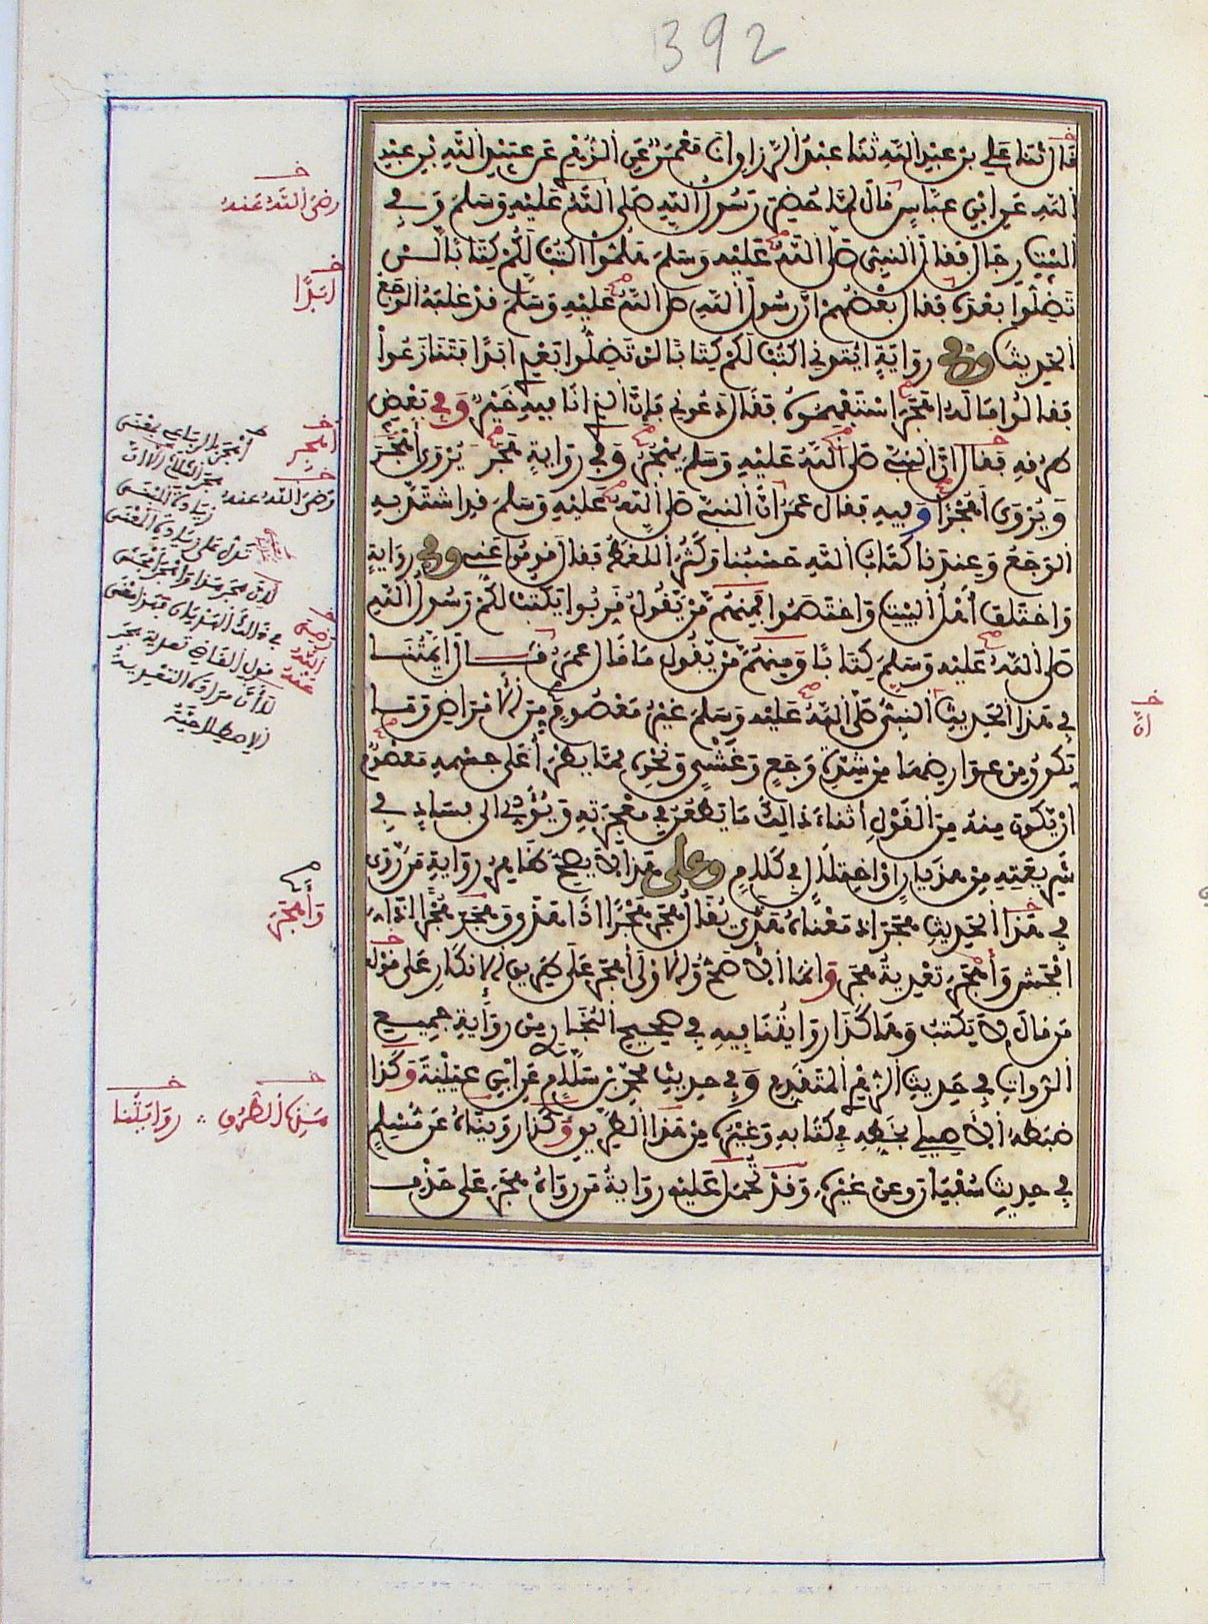 392
قال ثنا علي بن عبد الله ثنا عبد الرزاق انا معمر عن الزهري عن عبيد الله بن عبد
الله عن ابن عباس قال لما حضر رسول الله صلى الله عليه وسلم وفي
البيت رجال فقال النبي صلى الله عليه وسلم هلموا اكتب لكم كتابا لن
تضلوا بعده فقال بعضهم ان رسول الله صلى الله عليه وسلم قد غلبه الوجع
الحديث وفي رواية ايتوني اكتب لكم كتابا لن تضلوا بعدي ابدا فتنازعوا
فقالوا ما له اهجر استفهموه فقال دعوني فان الذي انا فيه خير وفي بعض
طرقه فقال ان النبي صلى الله عليه وسلم يهجر وفي رواية هجر يروى اهجر
ويروى اهجرا وفيه فقال عمر ان النبي صلى الله عليه وسلم قد اشتد به
الوجع وعندنا كتاب الله حسبنا وكثر اللغط فقال قوموا عني وفي رواية
واختلف اهل البيت واختصموا فمنهم من يقول قربوا يكتب لكم رسول الله
صلى الله عليه وسلم كتابا ومنهم من يقول ما قال عمر قال ايمتنا
في هذا الحديث النبي صلى الله عليه وسلم غير معصوم من الامراض وما
يكون من عوارضها من شدة وجع وغشي ونحوه مما يطرا على جسمه معصوم
ان يكون منه من القول اثناء ذالك ما يطعن في معجزته ويؤدي الى فساد في
شريعته من هذيان او اختلال في كلام وعلى هذا لا يصح ظاهر رواية من روى
في هذا الحديث هجر اذ معناه هذى يقال هجر هجرا اذا هذى واهجر هجرا اذا
افحش واهجر تعدية هجر وانما الاصح والاولى اهجر على طريق الانكار على من
قال لا يكتب وهكذا روايتنا فيه في صحيح البخاري من رواية جميع
الرواة في حديث الزهري المتقدم وفي حديث محمد بن سلام عن ابن عيينة وكذا
ضبطه الاصيلي بخطه في كتابه وغيره من هذا الطريق وكذا رويناه عن مسلم
في حديث سفيان وعن غيره وقد تحمل عليه رواية من رواه هجر على حذف
رضي الله عنه
ابدا
اهجر
رضي الله عنه
اهجر الرباعي بمعنى
هجر الثلاثي الا ان
زيادة المبنى
تدل على زيادة المعنى
رضي
الله
عنه
قول القاضي تعدية هجر
الاصطلاحية
واهجر
ان
من هذا الطريق
روايتنا